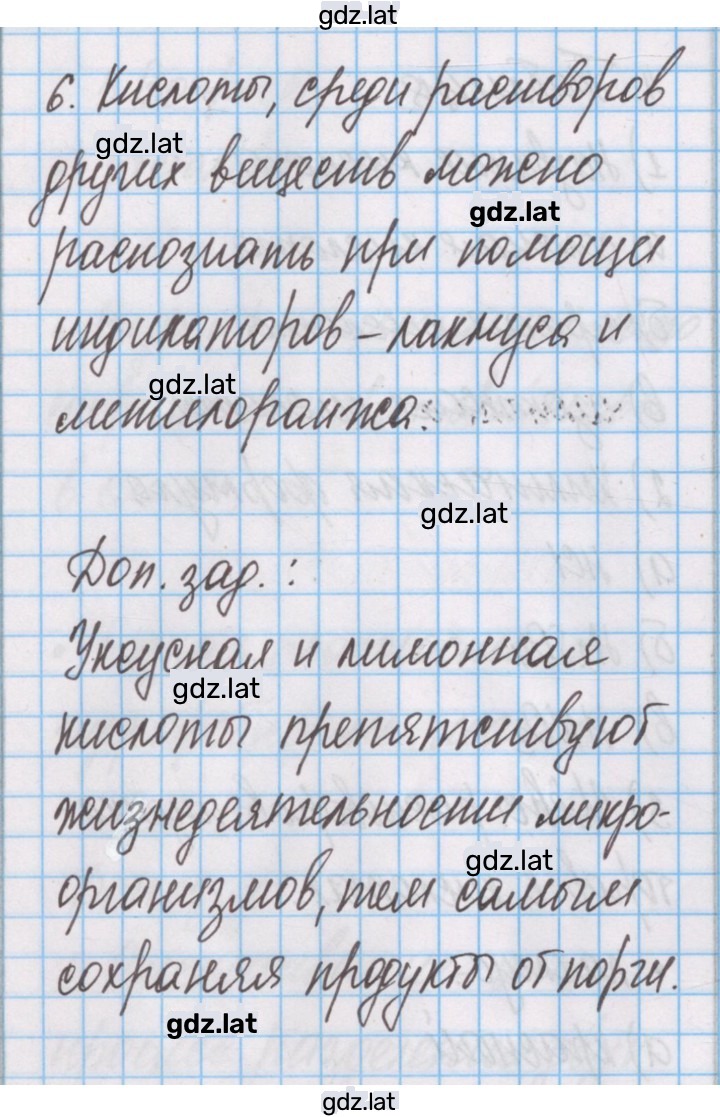 gdz.lat
6. Кислоты, среди растворов
gdz.lat
других веществ можно
gdz.lat
распознать при помощи
индикаторов – лакмуса и
gdz.lat
метилоранжа.
gdz.lat
Доп. зад.:
Уксусная и лимонная
gdz.lat
кислоты препятствуют
жизнедеятельности микро-
gdz.lat
организмов, тем самым
сохраняя продукты от порги.
gdz.lat
gdz.lat